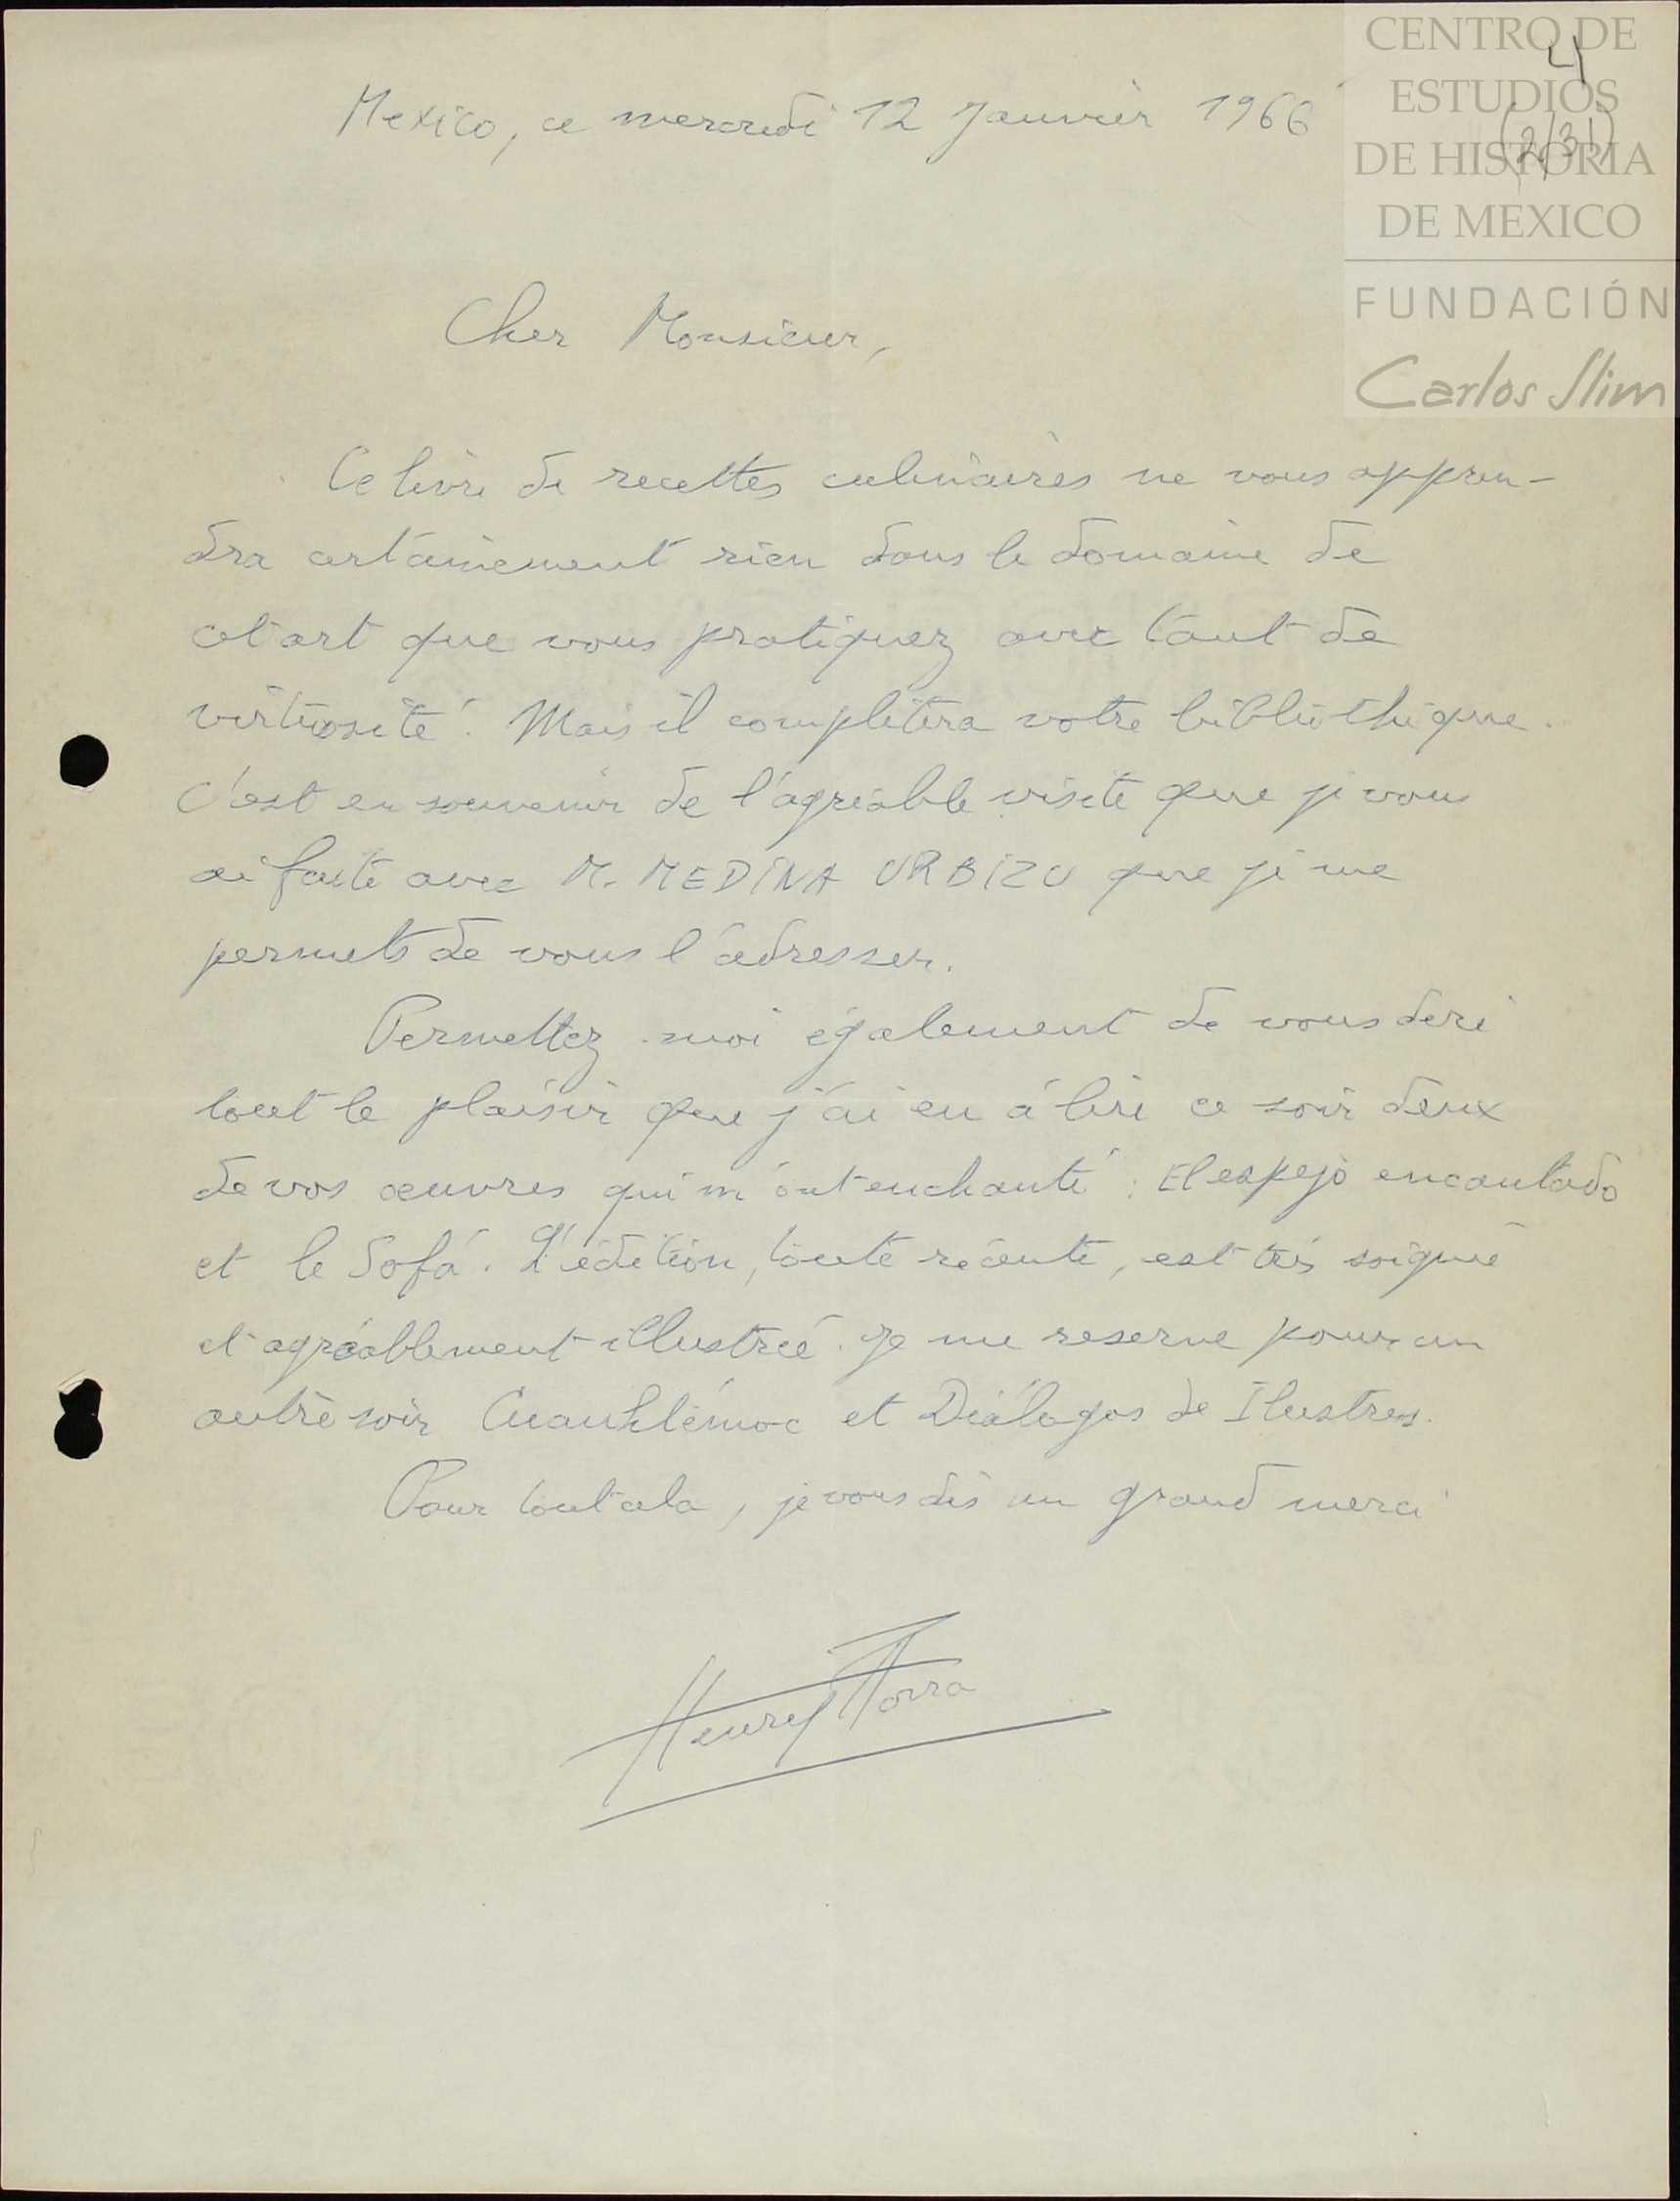 CENTRO DE
ESTUDIOS
DE HISTORIA
DE MEXICO
FUNDACIÓN
Carlos Slim
4
(2/31)
Mexico, ce mercredi 12 Janvier 1966
Cher Monsieur,
Ce livre de recettes culinaires ne vous appren-
dra certainement rien dans le domaine de
cet art que vous pratiquez avec tant de
virtuosité. Mais il complètera votre bibliothèque.
C'est en souvenir de l'agréable visite que je vous
ai faite avec M. MEDINA URBIZU que je me
permets de vous l'adresser.
Permettez-moi également de vous dire
tout le plaisir que j'ai eu à lire ce soir deux
de vos œuvres qui m'ont enchanté : El espejo encantado
et le Sofá. L'édition, toute récente, est très soignée
et agréablement illustrée. Je me reserve pour un
autre soir Cuauhtémoc et Diálogos de Ilustres.
Pour tout cela, je vous dis un grand merci
Henry